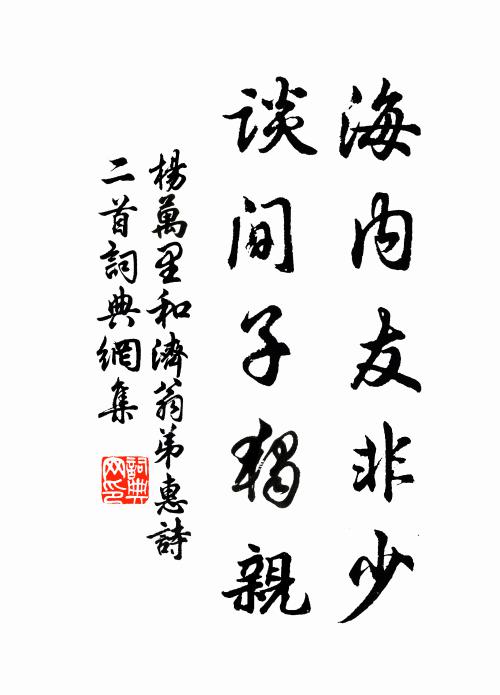 海内友非少
談間子獨親
楊萬里和濟翁弟惠詩
二首詞典網集
詞典
网印